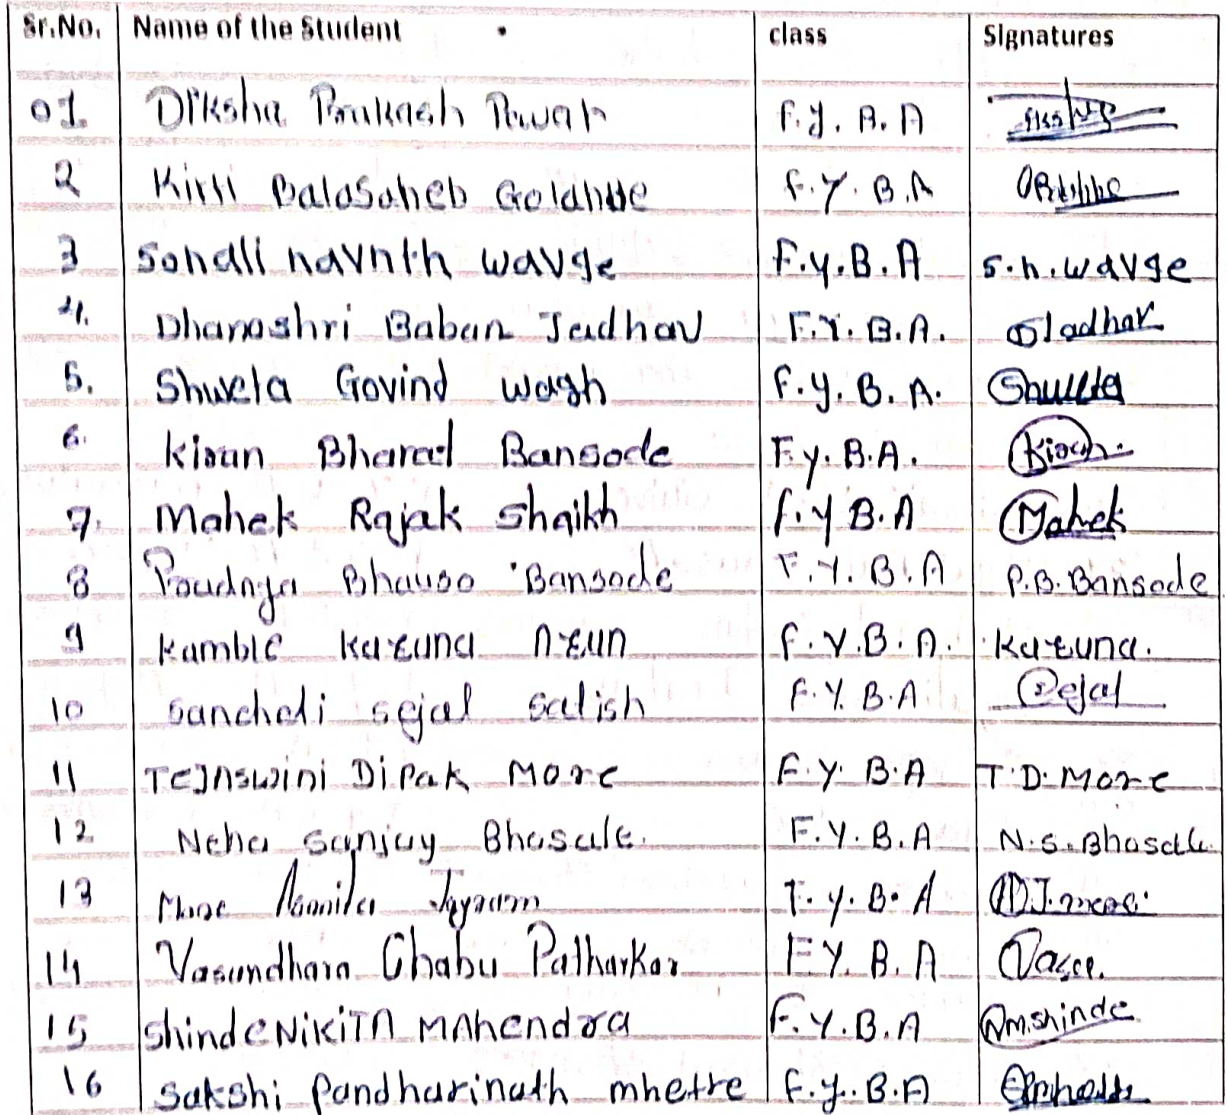 Sr.No. Name of the Student class Signatures
01. Diksha Prakash Pawar F.Y.B.A
2 Kirti Balasaheb F.Y.B.A
3 Sonali navnth wavge F.y.B.A s.n.wavge
4. Dhanashri Baban Jadhav F.Y.B.A. Jadhav
5. Shweta Govind wagh F.y.B.A. Shweta
6. Kiran Bharat Bansode F.y.B.A. Kiran
7. Mahek Rajak Shaikh F.y B.A Mahek
8 Bhauso Bansode F.Y.B.A P.B.Bansode
9 Kamble karuna Arun F.Y.B.A. Karuna.
10 sejal satish F.Y.B.A Sejal
11 TeJAswini DiPak More F.Y.B.A T.D.More
12 Neha sanjay Bhosale. F.Y.B.A N.S.Bhosale
13 More Jayram F.y.B.A
14 Vasundhara Chabu Patharkar F.Y.B.A
15 Shinde NiKiTA MAhendra F.Y.B.A N.m.shinde
16 Sakshi Pandharinath mhetre F.y.B.A